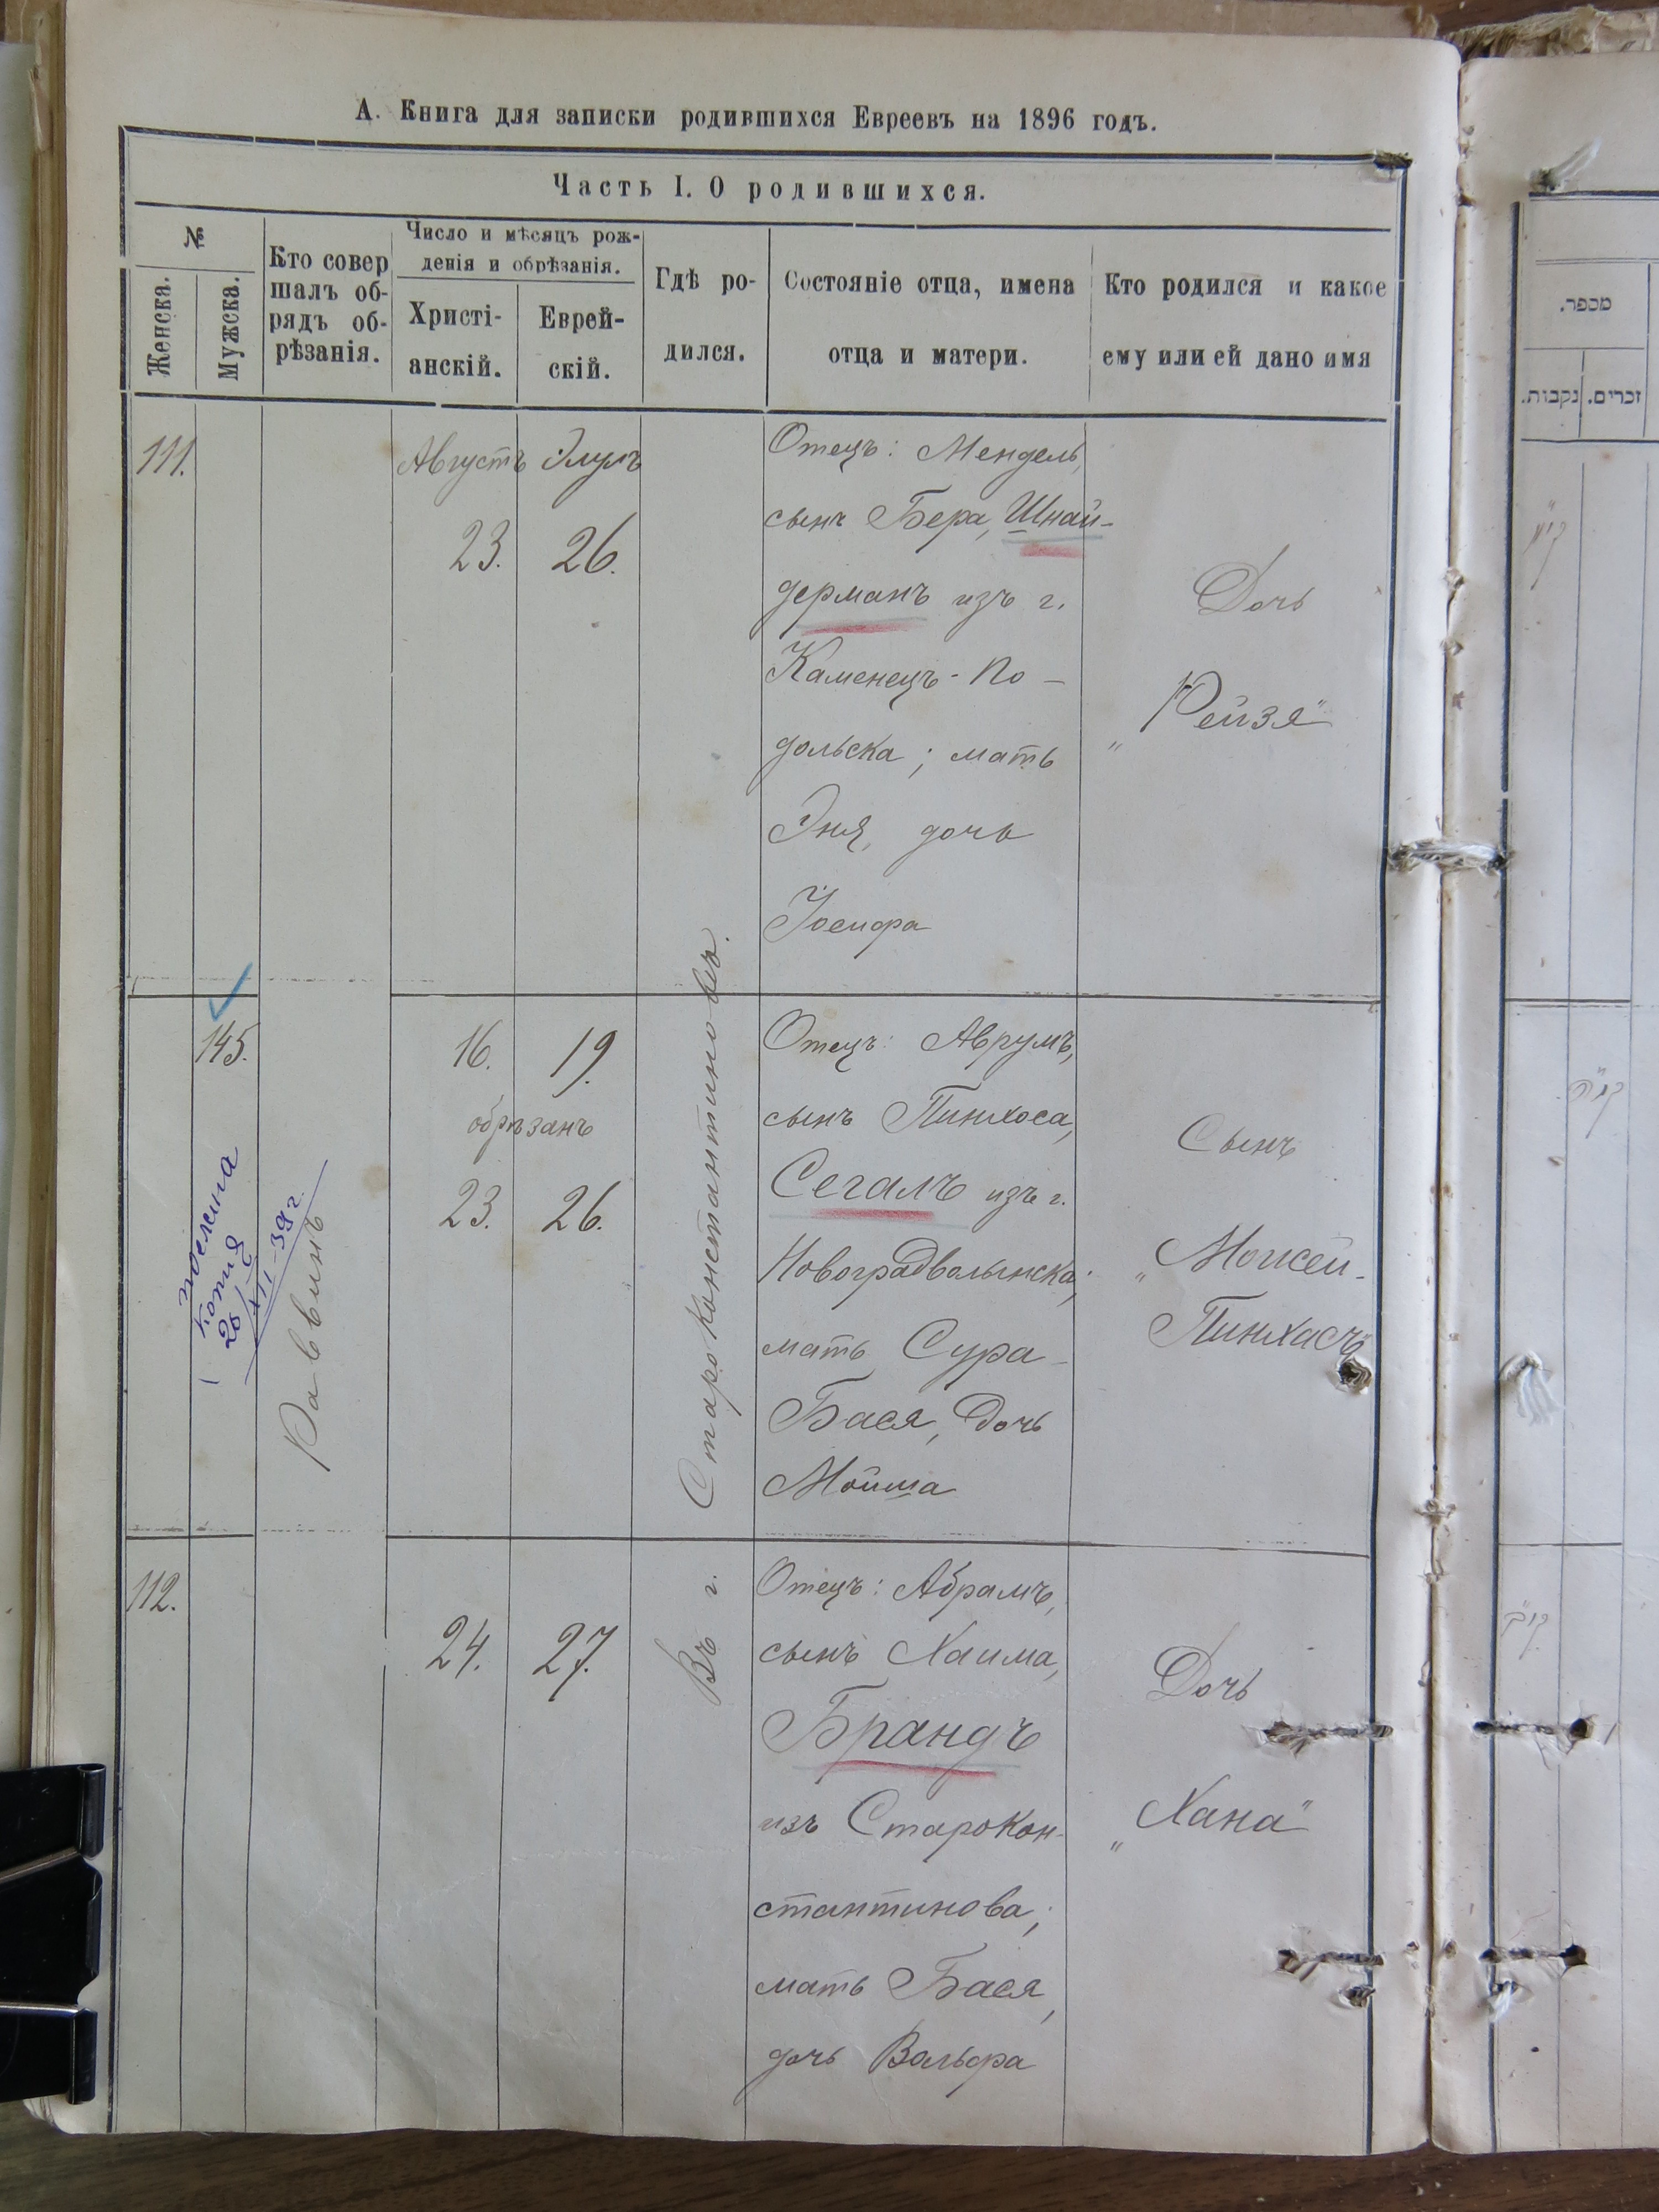 А. Книга для записки родившихся Евреевъ на 1896 годъ.
Часть I. О родившихся.
№
Женска.
Мужска.
Кто совер
шалъ об-
рядъ об-
рѣзанія.
Число и мѣсяцъ рож-
денія и обрѣзанія.
Христі-
анскій.
Еврей-
скій.
Гдѣ ро-
дился.
Состояніе отца, имена
отца и матери.
Кто родился и какое
ему или ей дано имя
111.
Августъ Элулъ
23. 26.
Отецъ: Мендель,
сынъ Бера, Шнай-
дерманъ изъ г.
Каменецъ-По-
дольска; мать
Эня, дочь
Іосифа
Дочь
„Рейзя"
145.
Раввинъ
16. 19.
обрѣзанъ
23. 26.
Въ г. Староконстантиновѣ.
Отецъ: Аврумъ,
сынъ Пинхоса,
Сегалъ изъ г.
Новоградволынска;
мать Сура-
Бася, дочь
Мойша
Сынъ
„Мойсей-
Пинхасъ"
копия
26/XII-39 г.
112.
24. 27.
Отецъ: Абрамъ,
сынъ Хаима,
Брандъ
изъ Старокон-
стантинова;
мать Бася,
дочь Вольфа
Дочь
„Хана"
מספר.
נקבות.
זכרים.
קי"א
קמ"ה
קי"ב